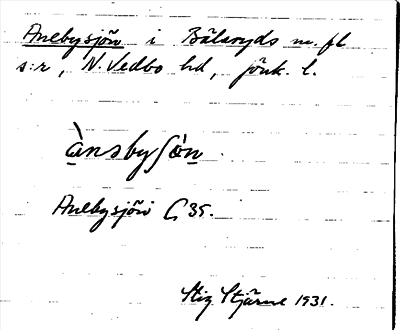 Anebysjön i Bälaryds m. fl
s:r, N. Vedbo hd, jönk. l.
ànsbyʃö̀n
Anebysjön G 35.
Stig Stjärne 1931.